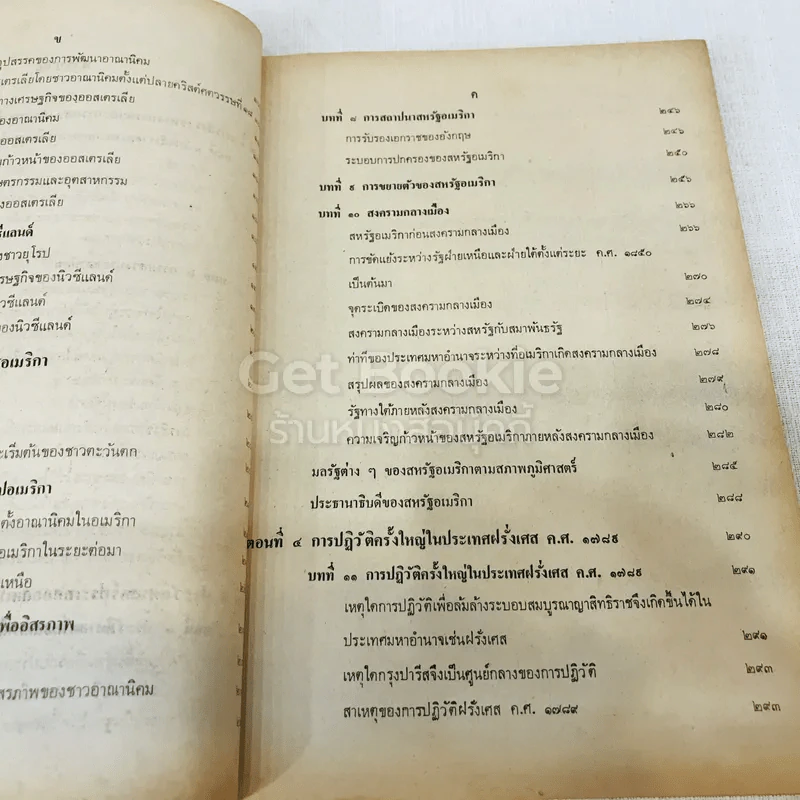 ข
อุปสรรคของการพัฒนาอาณานิคม
เตรเลียโดยชาวอาณานิคมตั้งแต่ปลายคริสต์ศตวรรษที่ ๑๘
ทางเศรษฐกิจของออสเตรเลีย
ของอาณานิคม
ออสเตรเลีย
ก้าวหน้าของออสเตรเลีย
ษตรกรรมและอุตสาหกรรม
องออสเตรเลีย
ซีแลนด์
งชาวยุโรป
รษฐกิจของนิวซีแลนด์
วซีแลนด์
ของนิวซีแลนด์
อเมริกา
ะเริ่มต้นของชาวตะวันตก
ปอเมริกา
ตั้งอาณานิคมในอเมริกา
อเมริกาในระยะต่อมา
เหนือ
พื่ออิสรภาพ
สรภาพของชาวอาณานิคม
ค
บทที่ ๘ การสถาปนาสหรัฐอเมริกา ๒๔๖
การรับรองเอกราชของอังกฤษ ๒๔๖
ระบอบการปกครองของสหรัฐอเมริกา ๒๕๐
บทที่ ๙ การขยายตัวของสหรัฐอเมริกา ๒๕๖
บทที่ ๑๐ สงครามกลางเมือง ๒๖๖
สหรัฐอเมริกาก่อนสงครามกลางเมือง ๒๖๖
การขัดแย้งระหว่างรัฐฝ่ายเหนือและฝ่ายใต้ตั้งแต่ระยะ ค.ศ. ๑๘๕๐
เป็นต้นมา ๒๗๐
จุดระเบิดของสงครามกลางเมือง ๒๗๔
สงครามกลางเมืองระหว่างสหรัฐกับสมาพันธรัฐ ๒๗๖
ท่าทีของประเทศมหาอำนาจระหว่างที่อเมริกาเกิดสงครามกลางเมือง ๒๗๘
สรุปผลของสงครามกลางเมือง ๒๗๙
รัฐทางใต้ภายหลังสงครามกลางเมือง ๒๘๐
ความเจริญก้าวหน้าของสหรัฐอเมริกาภายหลังสงครามกลางเมือง ๒๘๒
มลรัฐต่าง ๆ ของสหรัฐอเมริกาตามสภาพภูมิศาสตร์ ๒๘๕
ประธานาธิบดีของสหรัฐอเมริกา ๒๘๘
ตอนที่ ๔ การปฏิวัติครั้งใหญ่ในประเทศฝรั่งเศส ค.ศ. ๑๗๘๙ ๒๙๐
บทที่ ๑๑ การปฏิวัติครั้งใหญ่ในประเทศฝรั่งเศส ค.ศ. ๑๗๘๙ ๒๙๑
เหตุใดการปฏิวัติเพื่อล้มล้างระบอบสมบูรณาญาสิทธิราชจึงเกิดขึ้นได้ใน
ประเทศมหาอำนาจเช่นฝรั่งเศส ๒๙๑
เหตุใดกรุงปารีสจึงเป็นศูนย์กลางของการปฏิวัติ ๒๙๓
สาเหตุของการปฏิวัติฝรั่งเศส ค.ศ. ๑๗๘๙ ๒๙๓
Get Bookie